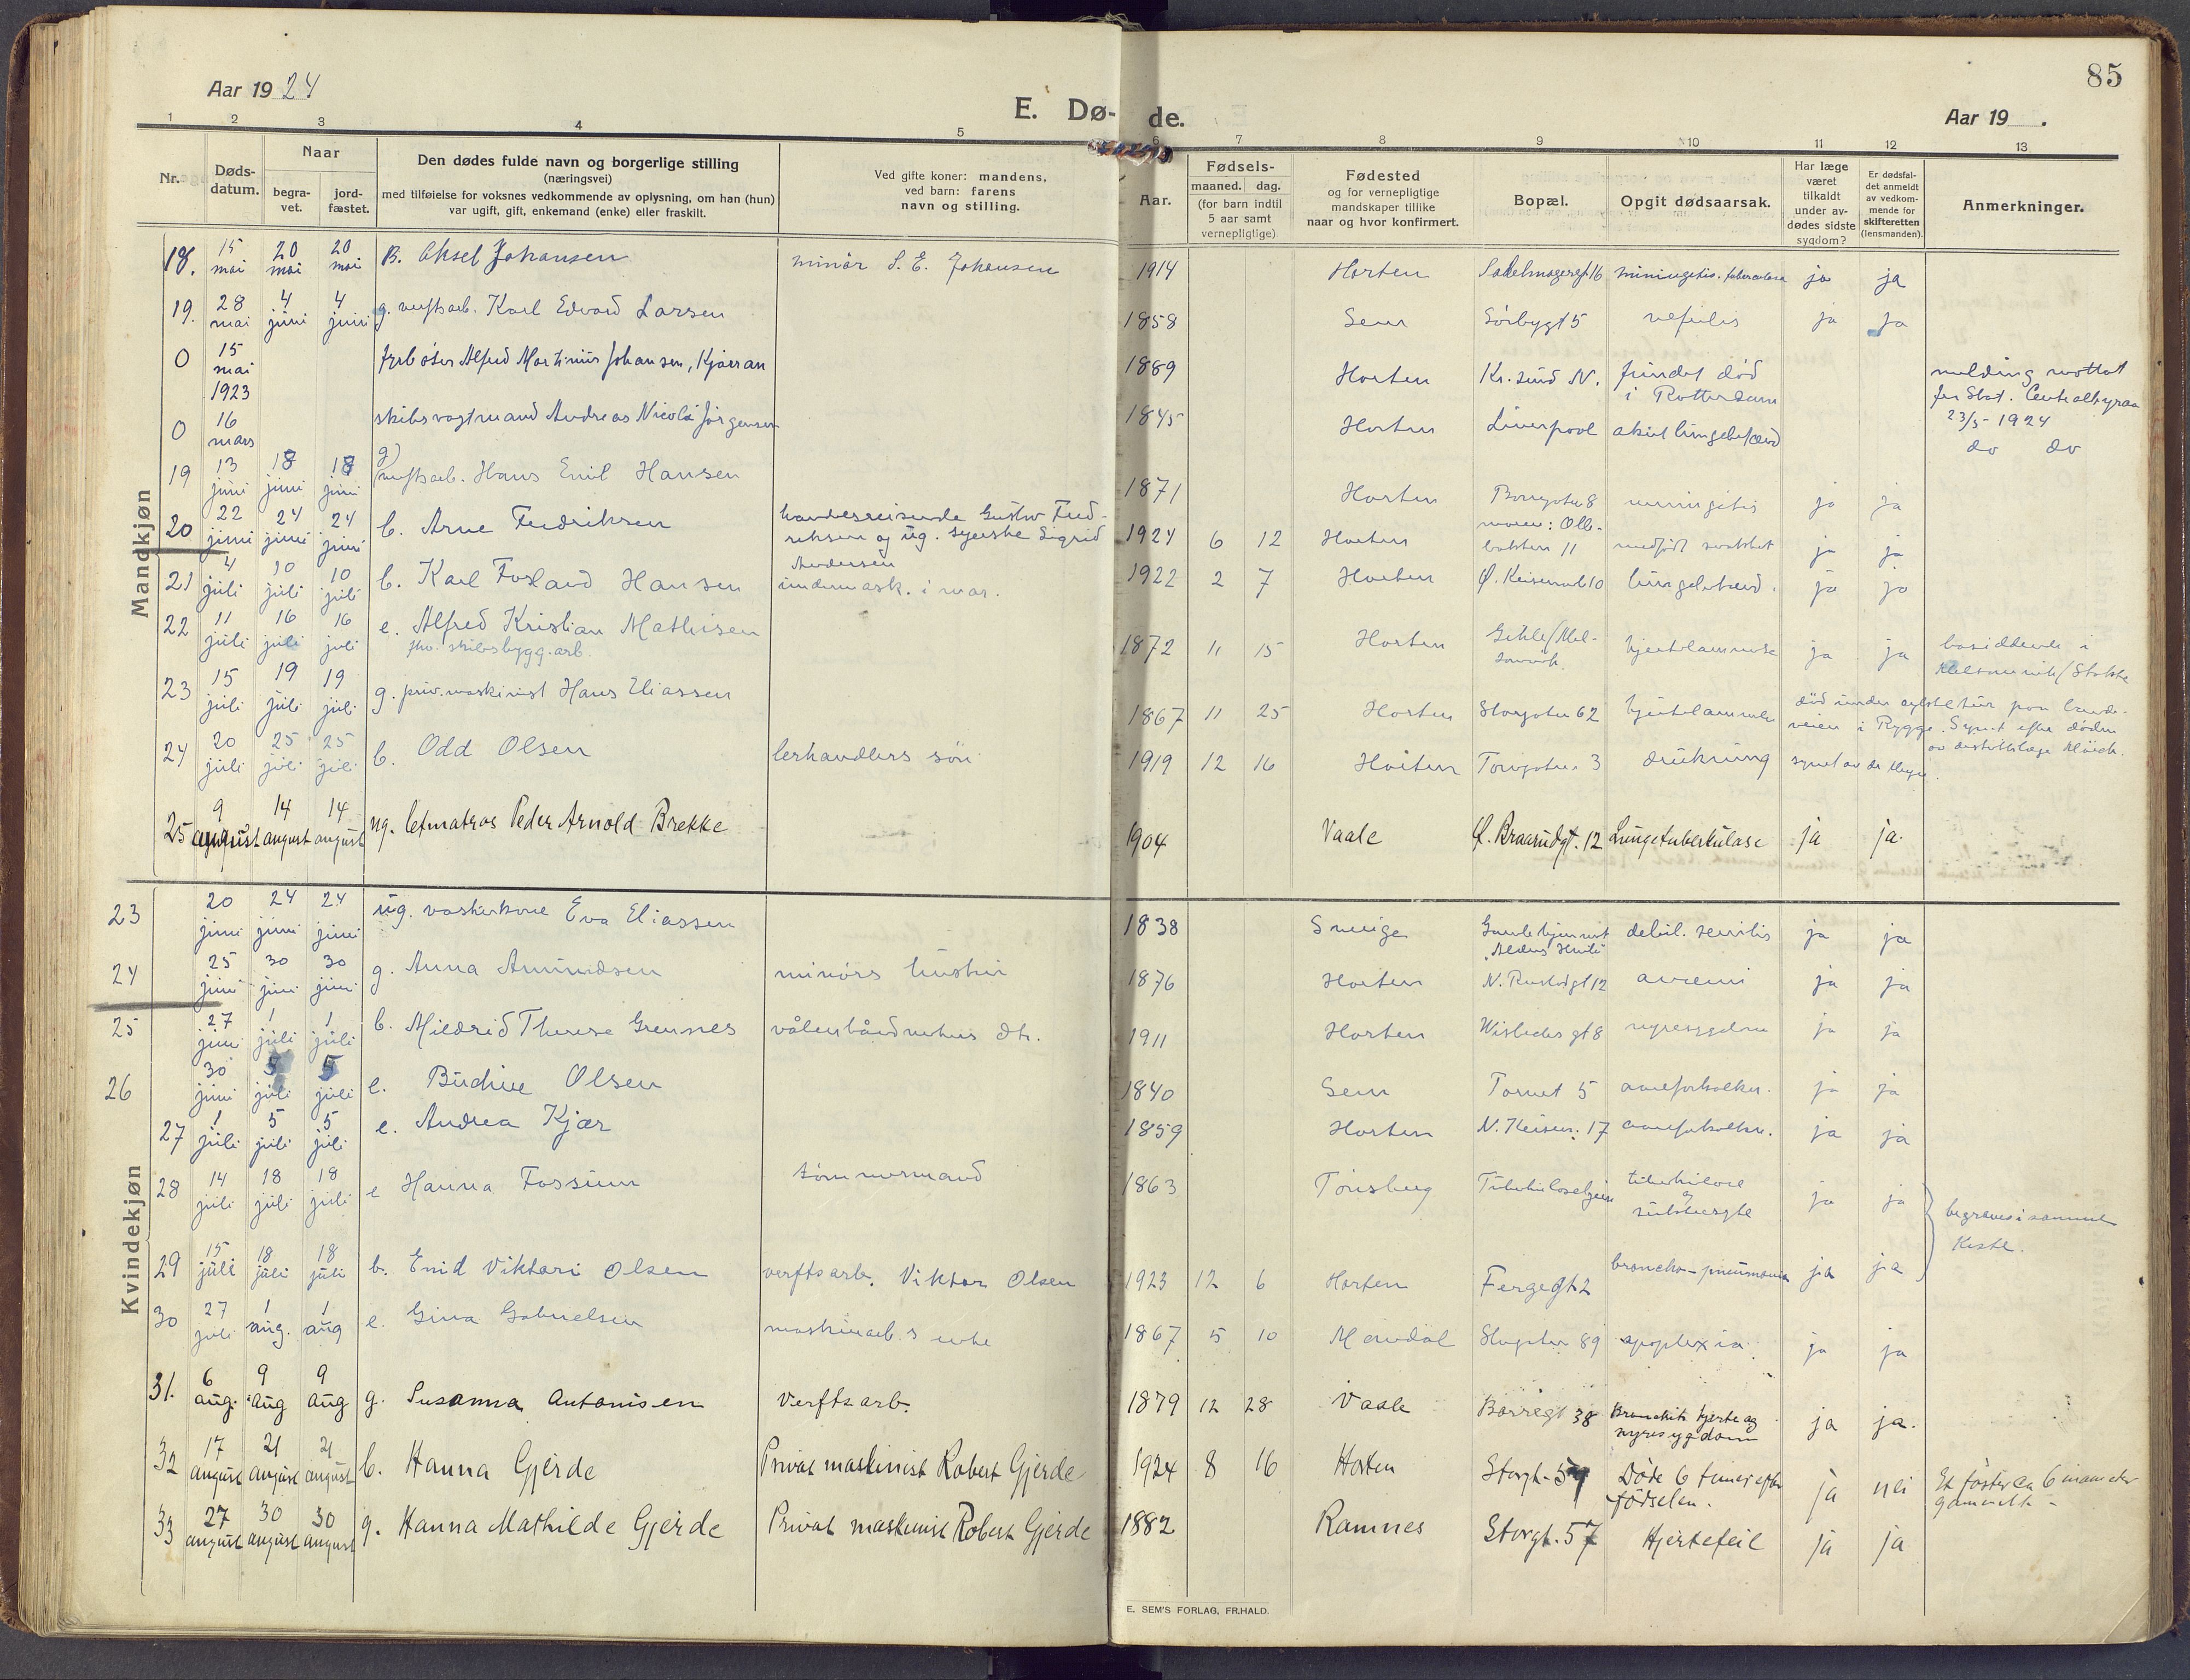 85
Aar 1924
E. Dø- de.
Aar 19 .
1 2 3 4 5 6 7 8 9 10 11 12 13
Nr.
Døds-
datum.
Naar
begra-
vet.
jord-
fæstet.
Den dødes fulde navn og borgerlige stilling
(næringsvei)
med tilføielse for voksnes vedkommende av oplysning, om han (hun)
var ugift, gift, enkemand (enke) eller fraskilt.
Ved gifte koner: mandens,
ved barn: farens
navn og stilling.
Aar.
Fødsels-
maaned. dag.
(for barn indtil
5 aar samt
vernepligtige)
Fødested
og for vernepligtige
mandskaper tillike
naar og hvor konfirmert.
Bopæl.
Opgit dødsaarsak.
Har læge
været
tilkaldt
under av-
dødes sidste
sygdom?
Er dødsfal-
det anmeldt
av vedkom-
mende for
skifteretten
(lensmanden).
Anmerkninger.
Mandkjøn
18. 15 mai 20 mai 20 mai B. Aksel Johansen minör S. E. Johansen 1914 Horten 16 tuberculosa ja ja
19. 28 mai 4 juni 4 juni g. Karl Edvard Larsen 1858 Sem Sörbygt 5 ja ja
0 15 mai 1923 fyrböter Alfred Martinius Johansen, Kjæran 1889 Horten Kr.sund N. fundet död i Rotterdam melding mottat fra Stat. Centralbyraa 23/5-1924
0 16 mars skibsvagtmand Andreas Nicolai Jörgensen 1845 Horten Liverpool akut lungebetænd do do
19 13 juni 18 juni 18 juni g) verftsarb. Hans Emil Hansen 1871 Horten 8 meningitis ja ja
20 22 juni 24 juni 24 juni b. Arne Fredriksen handelsreisende Gustav Fredriksen og ug. syerske Sigrid Andersen 1924 6 12 Horten 11 medfödt svakhet ja ja
21 4 juli 10 juli 10 juli b. Karl Fosland Hansen undermask. i mar. 1922 2 7 Horten Ø. Keiserveb 10 lungebetænd. ja ja
22 11 juli 16 juli 16 juli e. Alfred Kristian Mathisen fhv. skibsbygg.arb. 1872 11 15 Horten hjertelammelse ja ja bosiddende i Melsomvik/Stokke
23 15 juli 19 juli 19 juli g. priv. maskinist Hans Eliassen 1867 11 25 Horten Storgaten 62 hjertelammelse död under cykletur paa landeveien i Rygge. Synet efter döden av
24 20 juli 25 juli 25 juli b. Odd Olsen lerhandlers sön 1919 12 16 Horten Torvgaten 3 drukning synet av
25 9 august 14 august 14 august ug. letmatros Peder Arnold Brekke 1904 Vaale Ø. Braarudgt. 12 Lungetuberkulose ja ja.
Kvindekjøn
23 20 juni 24 juni 24 juni ug. vaskerkone Eva Eliassen 1838 Sverige Gamlehjemmet debil. senilis ja ja
24 25 juni 30 juni 30 juni g. Anna Amundsen minörs hustru 1876 Horten 12 ja ja
25 27 juni 1 juli 1 juli b. Mildrid Therese Grennes dtr. 1911 Horten Wisbeches gt 8 nyresygdom ja ja
26 30 juni 5 juli 5 juli e. Budine Olsen 1840 Sem Tornet 5 aareforkalkn. ja ja
27 1 juli 5 juli 5 juli e. Andrea Kjær 1859 Horten N. Keiserv. 17 aareforkalkn. ja ja
28 14 juli 18 juli 18 juli e Hanna Fossum tömmermand 1863 Tönsberg Tuberkulosehjem tuberkulose og ja ja begraves i samme kiste.
29 15 juli 18 juli 18 juli b. Enid Viktori Olsen verftsarb. Viktor Olsen 1923 12 6 Horten Fergegt 2 broncho-pneumonia ja ja
30 27 juli 1 aug. 1 aug e. Gina Gabrielsen maskinarb.s enke 1867 5 10 Mandal Storgaten 89 apoplexia ja ja
31. 6 aug. 9 aug 9 aug g. Susanna Antonisen Verftsarb. 1879 12 28 Vaale Borregt 38 Bronchit hjerte og nyresygdom ja ja.
32 17 august 21 august 21 august b. Hanna Gjerde Privat maskinist Robert Gjerde 1924 8 16 Horten Storgt. 57 Döde 6 timer efter födselen. ja nei Et foster ca 6 maaneder gammelt -
33 27 august 30 august 30 august g. Hanna Mathilde Gjerde Privat maskinist Robert Gjerde 1882 Ramnes Storgt. 57 Hjertefeil ja ja
E. SEM'S FORLAG, FR.HALD.